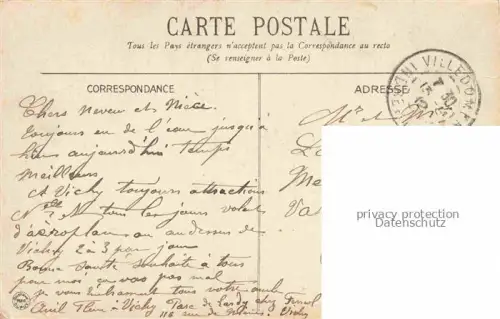 CARTE POSTALE
Tous les Pays étrangers n'acceptent pas la Correspondance au recto
(Se renseigner à la Poste)
CORRESPONDANCE
ADRESSE
Chers Neveu et Nièce
Toujours eu de l'eau jusqu'à
hier aujourdhui temps
meilleur
à Vichy toujours attractions
tous les jours volent
d'aéroplan au dessus de
Vichy 2 à 3 par jour
Bonne santé souhaite à tous
pour moi ça vas pas mal
je vous embrasse tous votre oncle
Vichy Parc de chez
rue de Vichy
Mr et M
VILLEDOM
privacy protection
Datenschutz